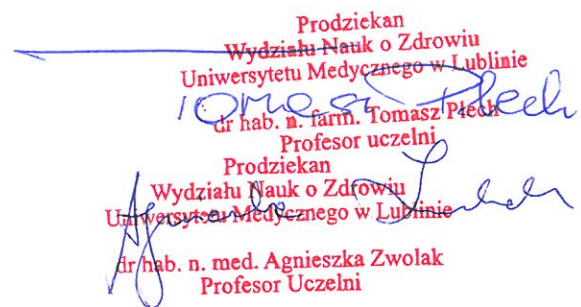 Prodziekan
Wydziału Nauk o Zdrowiu
Uniwersytetu Medycznego w Lublinie
Tomasz Płech
dr hab. n. farm. Tomasz Plech
Profesor uczelni
Prodziekan
Wydziału Nauk o Zdrowiu
Uniwersytetu Medycznego w Lublinie
Agnieszka
dr hab. n. med. Agnieszka Zwolak
Profesor Uczelni